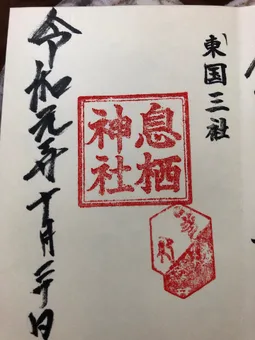 東国三社
息栖
神社
令和元年十月二十日